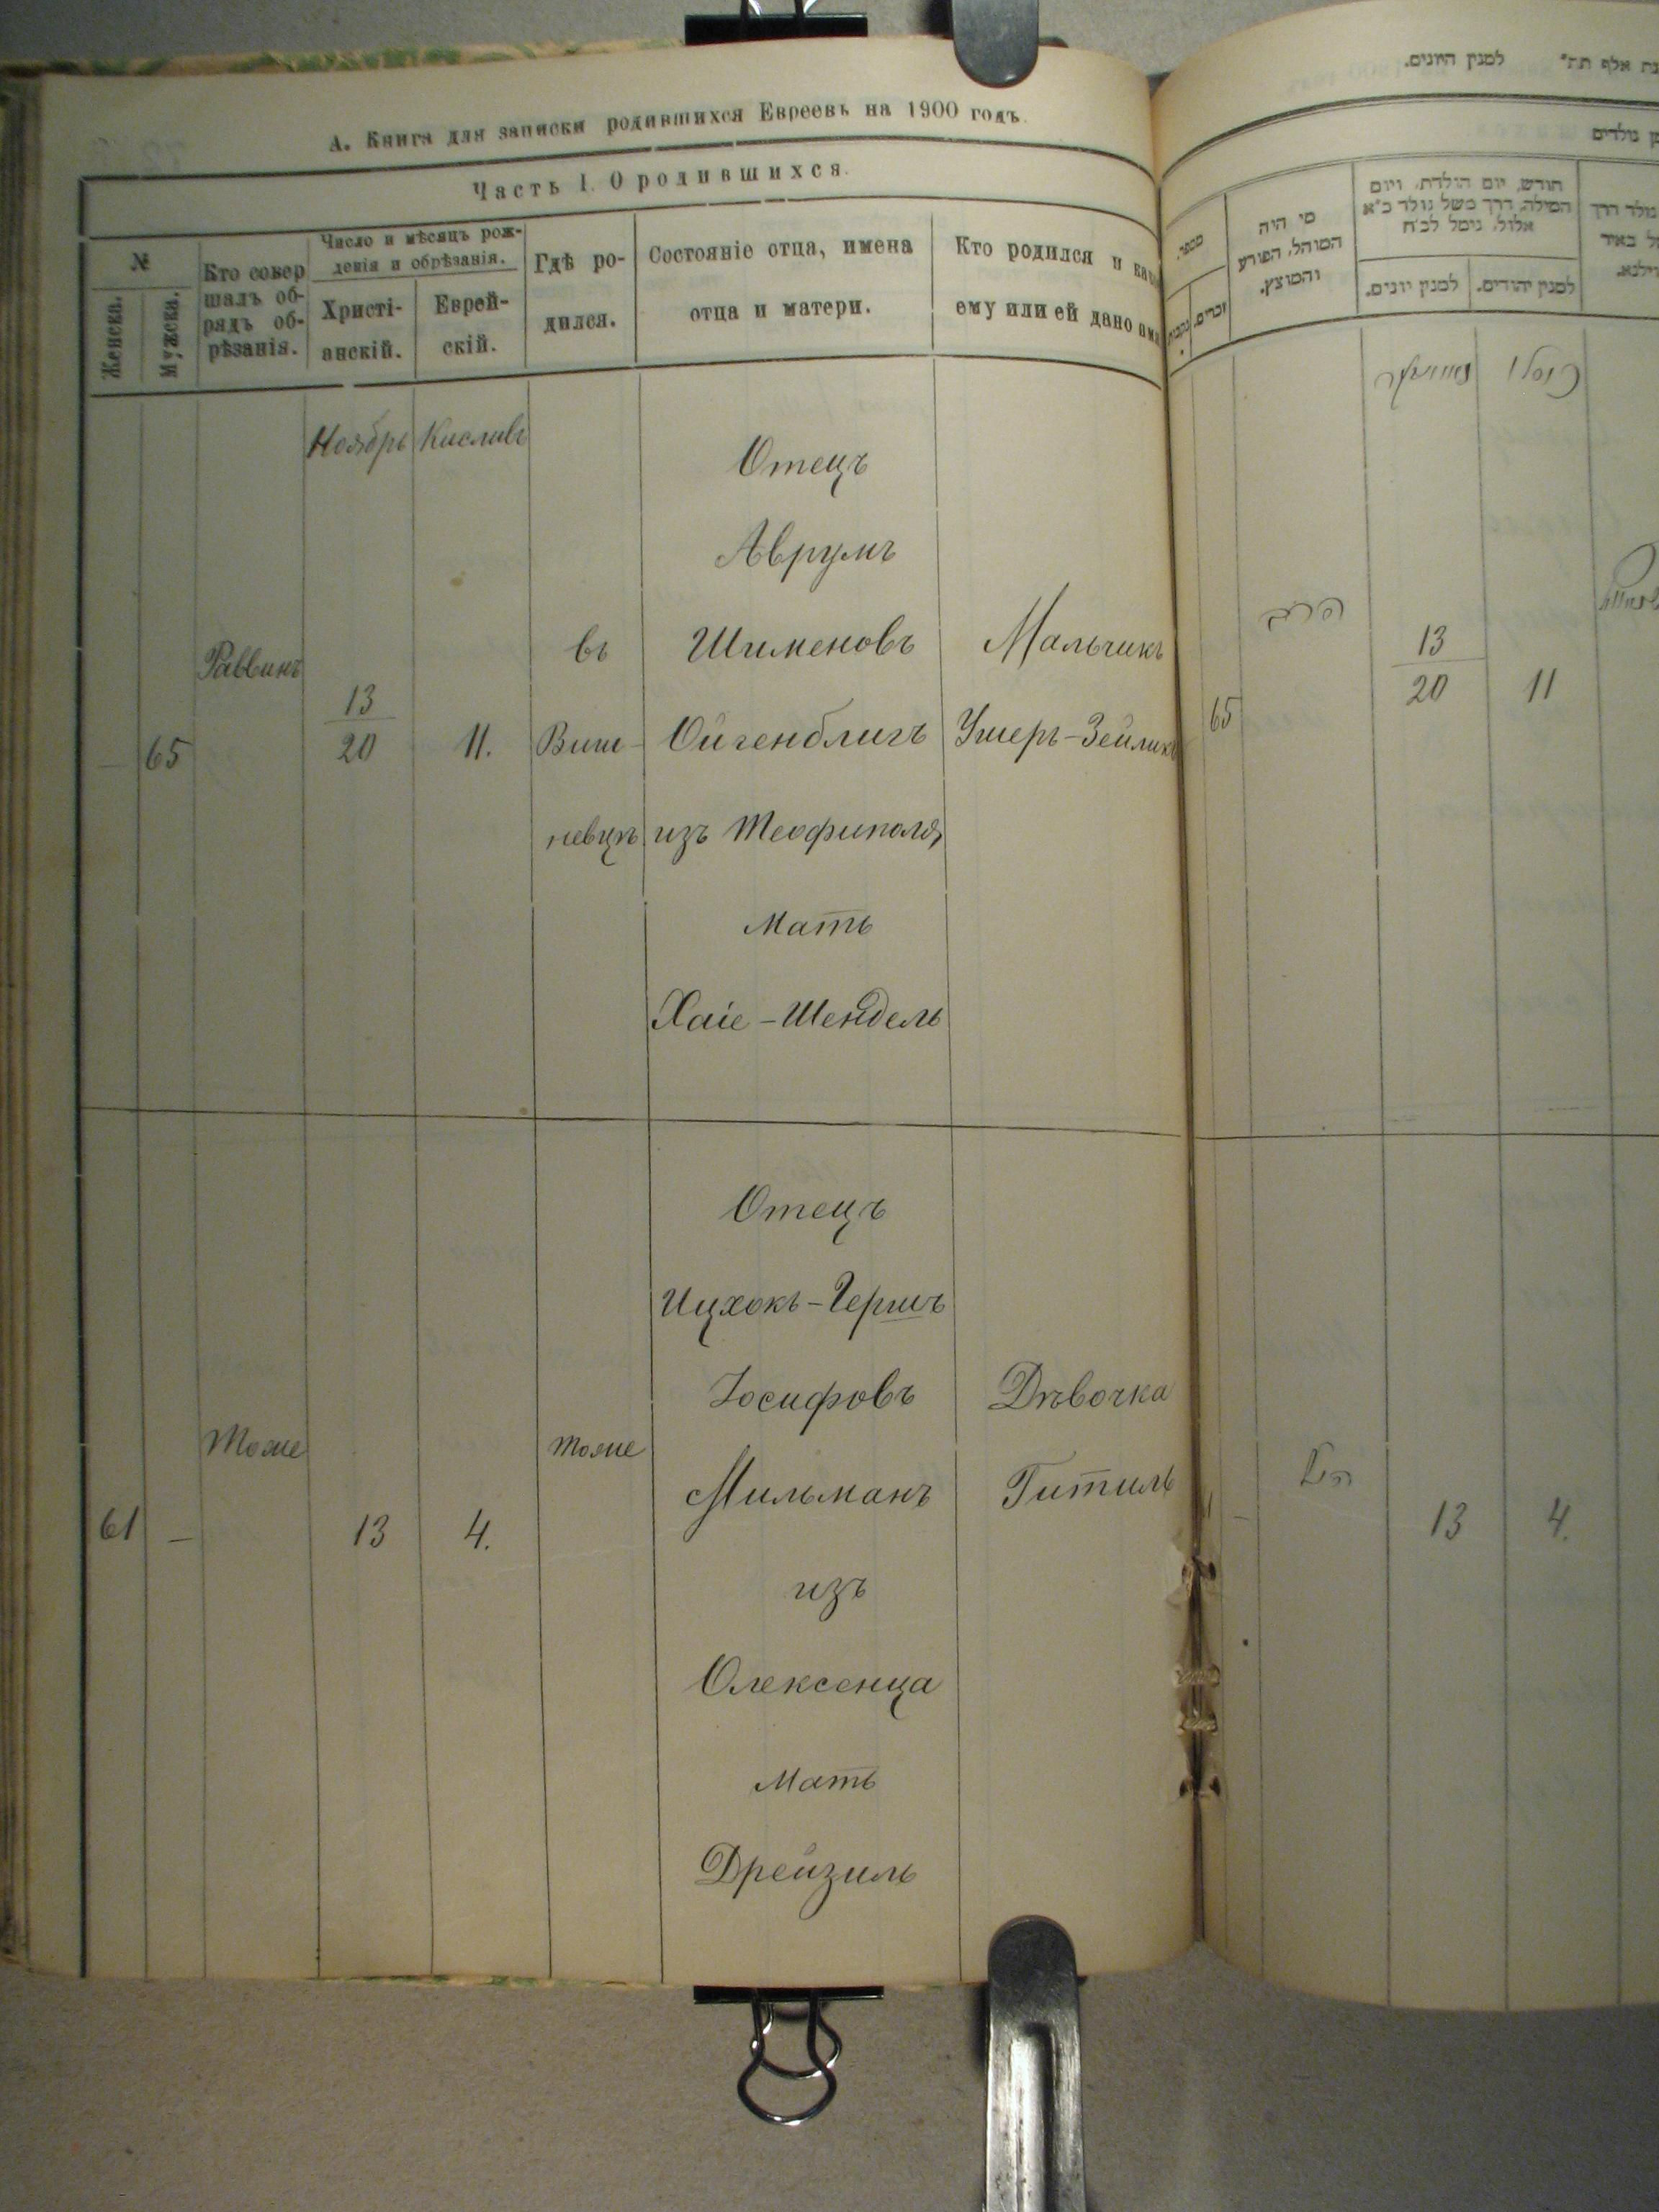 А. Книга для записки родившихся Евреевъ на 1900 годъ.
Часть I. О родившихся.
№
Женска.
Мужска.
Кто совер
шалъ об-
рядъ об-
рѣзанія.
Число и мѣсяцъ рож-
денія и обрѣзанія.
Христі-
анскій.
Еврей-
скій.
Гдѣ ро-
дился.
Состояніе отца, имена
отца и матери.
Кто родился и како
ему или ей дано имя
Ноябрь
Кисливъ
65
Раввинъ
13
20
11.
въ
Виш-
невцѣ
Отецъ
Аврумъ
Шименовъ
Ойгенблигъ
изъ Теофиполя,
Мать
Хаіе-Шендель
Мальчикъ
Ушеръ-Зейликъ
61
—
Тоже
13
4.
тоже
Отецъ
Ицхокъ-Гершъ
Іосифовъ
Мильманъ
изъ
Олексенца
Мать
Дрейзиль
Дѣвочка
Гитиль
למנין היונים.
מספר
זכרים.
מי היה
המוהל, הפורע
והמוצץ.
חודש, יום הולדת, ויום
המילה, דרך משל נולד כ״א
אלול, נימל לכ״ח
למנין יונים.
למנין יהודים.
כסלו
65
הרב
13
20
11
13
4.